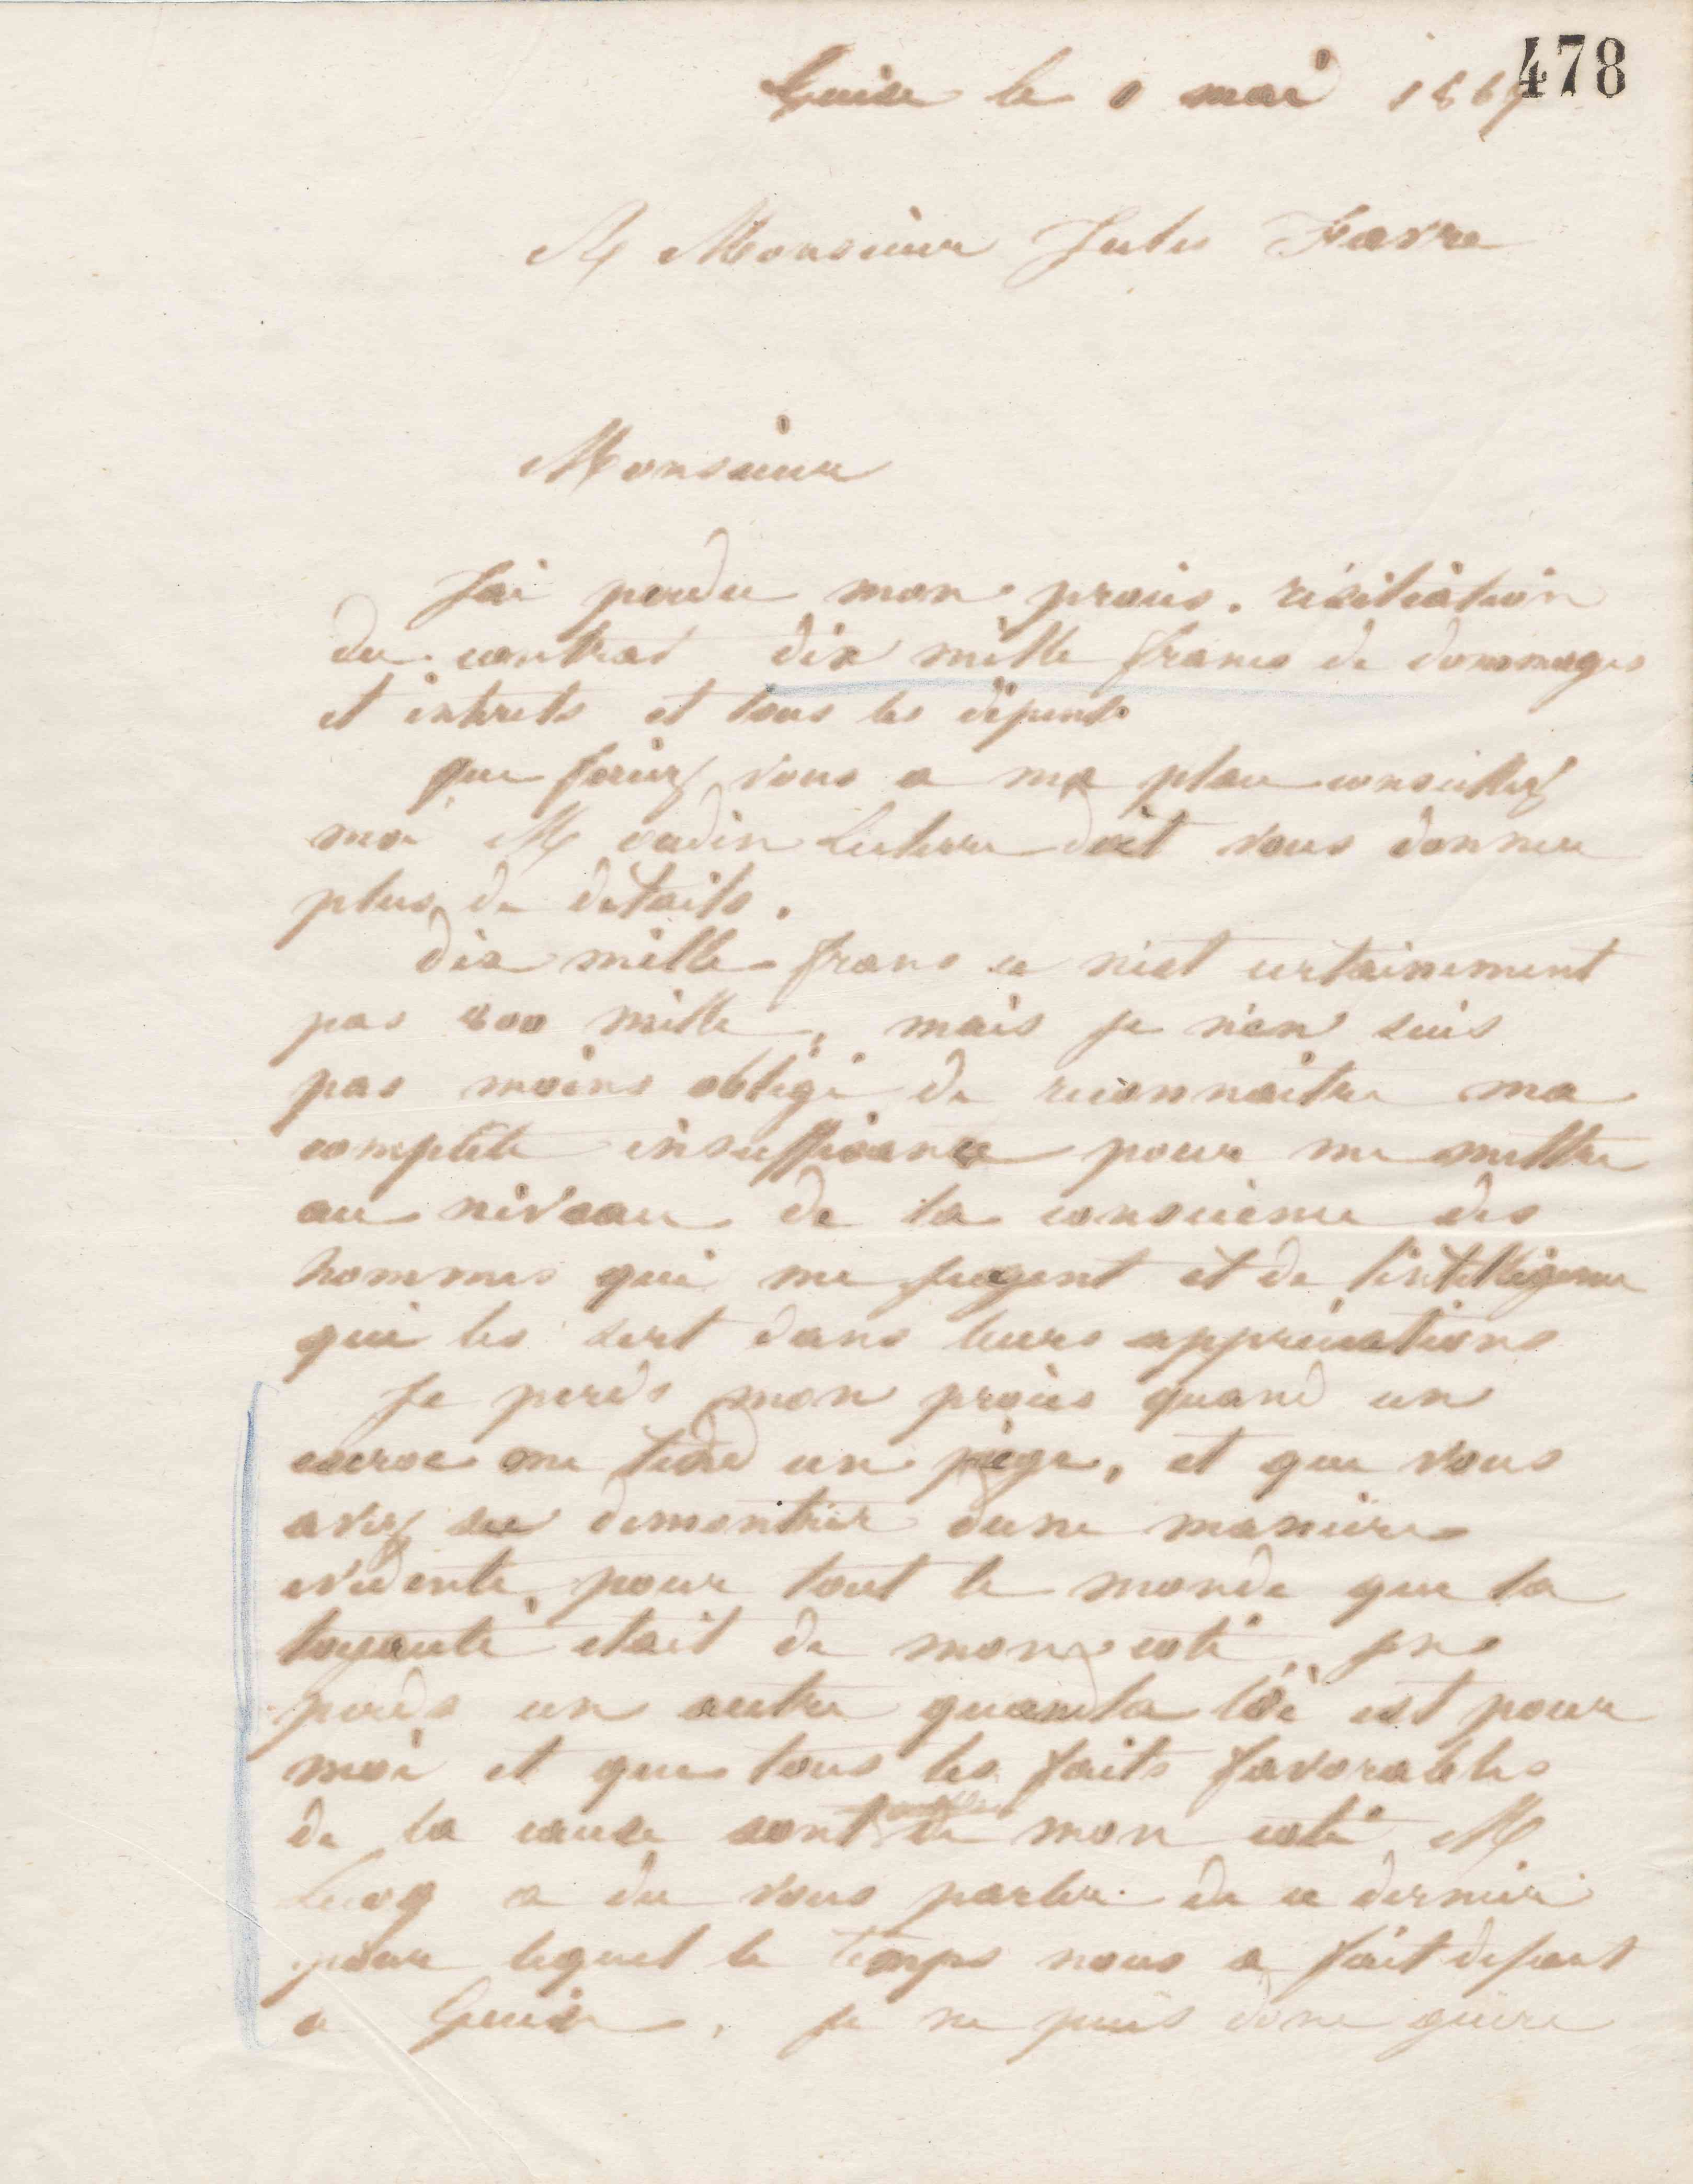 478
Guise le 8 mai 1869
A Monsieur Jules Favre
Monsieur
J'ai perdu mon procès. résiliation
du contrat dix mille francs de dommages
et intrets et tous les dépens.
que feriez vous a ma place conseillez
moi M oudin Leclerc doit vous donner
plus de details.
dix mille francs ce n'est certainement
pas 800 mille, mais je n'en suis
pas moins obligé de reconnaitre ma
complete insuffisance pour me mettre
au niveau de la conscience des
hommes qui me jugent et de l'intelligence
qui les sert dans leurs appréciations
Je perds mon procès quand un
escroc me tend un piège, et que vous
avez su demontrer dune manière
evidente, pour tout le monde que la
loyauté etait de mon coté, j'en
perds un autre quand la loi est pour
moi et que tous les faits favorables
de la cause sont de mon coté M
Lecoq a du vous parler de ce dernier
pour lequel le temps nous a fait defaut
a Guise, je ne puis donc guère